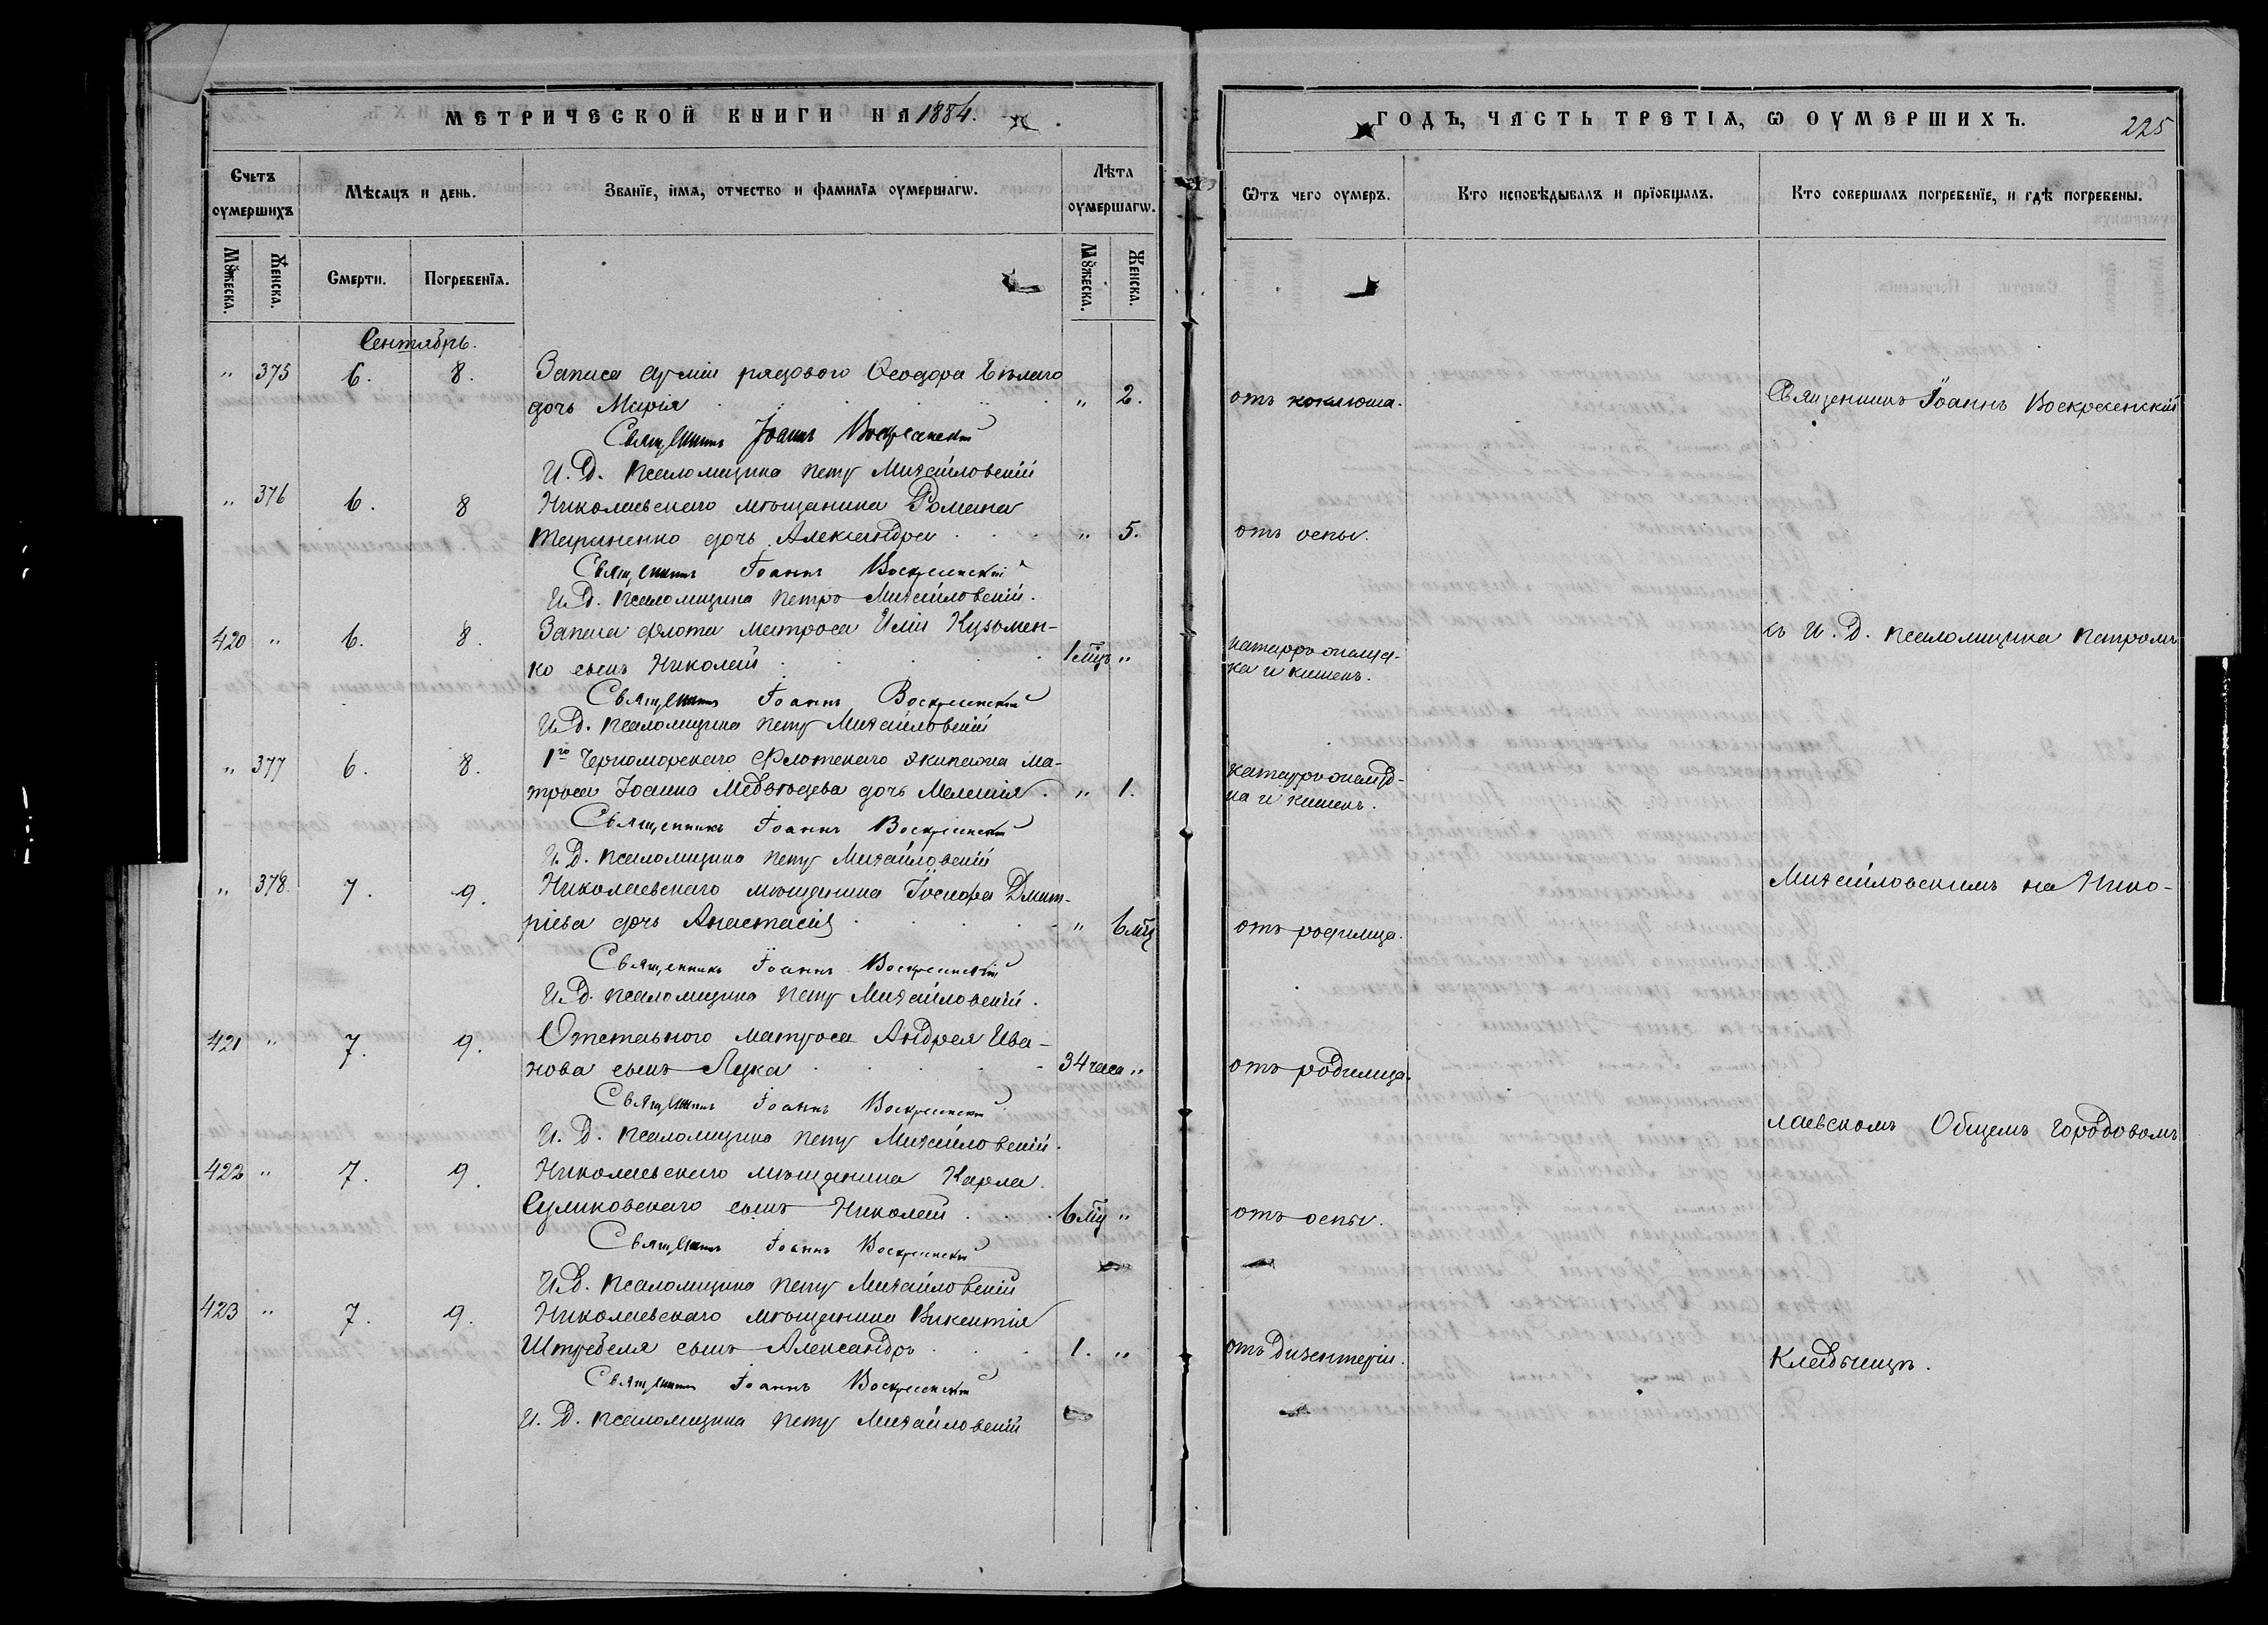 МЕТРИЧЕСКОЙ КНИГИ НА 1884.
Счетъ оумершихъ
Мѣсяцъ и день.
Званїе, имя, отчество и фамилїя оумершагѡ.
Лѣта оумершагѡ.
Мꙋжеска.
Женска.
Смерти.
Погребенїя.
Мꙋжеска.
Женска.
Сентябрь.
" 375 6. 8. Запаса арміи рядового Ѳеодора Бѣлаго
дочь Марія " 2.
Священникъ Іоаннъ Воскресенскій
И. Д. псаломщика Петръ Михайловскій
" 376 6. 8 Николаевскаго мѣщанина Романа
дочь Александра " 5.
Священникъ Іоаннъ Воскресенскій
И.Д. псаломщика Петръ Михайловскій.
420 " 6. 8. Запаса флота матроса Иліи Кузьмен-
ко сынъ Николай 1 мцъ "
Священникъ Іоаннъ Воскресенскій
И.Д. псаломщика Петръ Михайловскій
" 377 6. 8. 1го Черноморскаго Флотскаго экипажа ма-
троса Іоанна Медвѣдева дочь Меланія. " 1.
Священникъ Іоаннъ Воскресенскій
И. Д. псаломщика Петръ Михайловскій
" 378 7. 9. Николаевскаго мѣщанина Іосифа Дмит-
ріева дочь Анастасія " 6 мц
Священникъ Іоаннъ Воскресенскій
И.Д. псаломщика Петръ Михайловскій.
421 " 7. 9. Отставного матроса Андрея Ива-
нова сынъ Лука 34 часа "
Священникъ Іоаннъ Воскресенскій
И. Д. псаломщика Петръ Михайловскій.
422 " 7. 9. Николаевскаго мѣщанина Карла
Суликовскаго сынъ Николай 6 мц "
Священникъ Іоаннъ Воскресенскій
И.Д. псаломщика Петръ Михайловскій
423 " 7. 9. Николаевскаго мѣщанина Викентія
Штребеля сынъ Александръ 1. "
Священникъ Іоаннъ Воскресенскій
И. Д. псаломщика Петръ Михайловскій
ГОДЪ, ЧАСТЬ ТРЕТІЯ, Ѡ ОУМЕРШИХЪ. 225
Ѿтъ чего оумеръ.
Кто исповѣдывалъ и прїобщалъ.
Кто совершалъ погребенїе, и гдѣ погребены.
отъ коклюша.
Священникъ Іоаннъ Воскресенскій
отъ оспы.
съ И. Д. псаломщика Петромъ
катарръ желуд-
ка и кишекъ.
катарръ желуд-
ка и кишекъ.
Михайловскимъ на Нико-
отъ родимца.
отъ родимца.
лаевскомъ Общемъ Городовомъ
отъ оспы.
отъ дизентеріи.
Кладбищѣ.